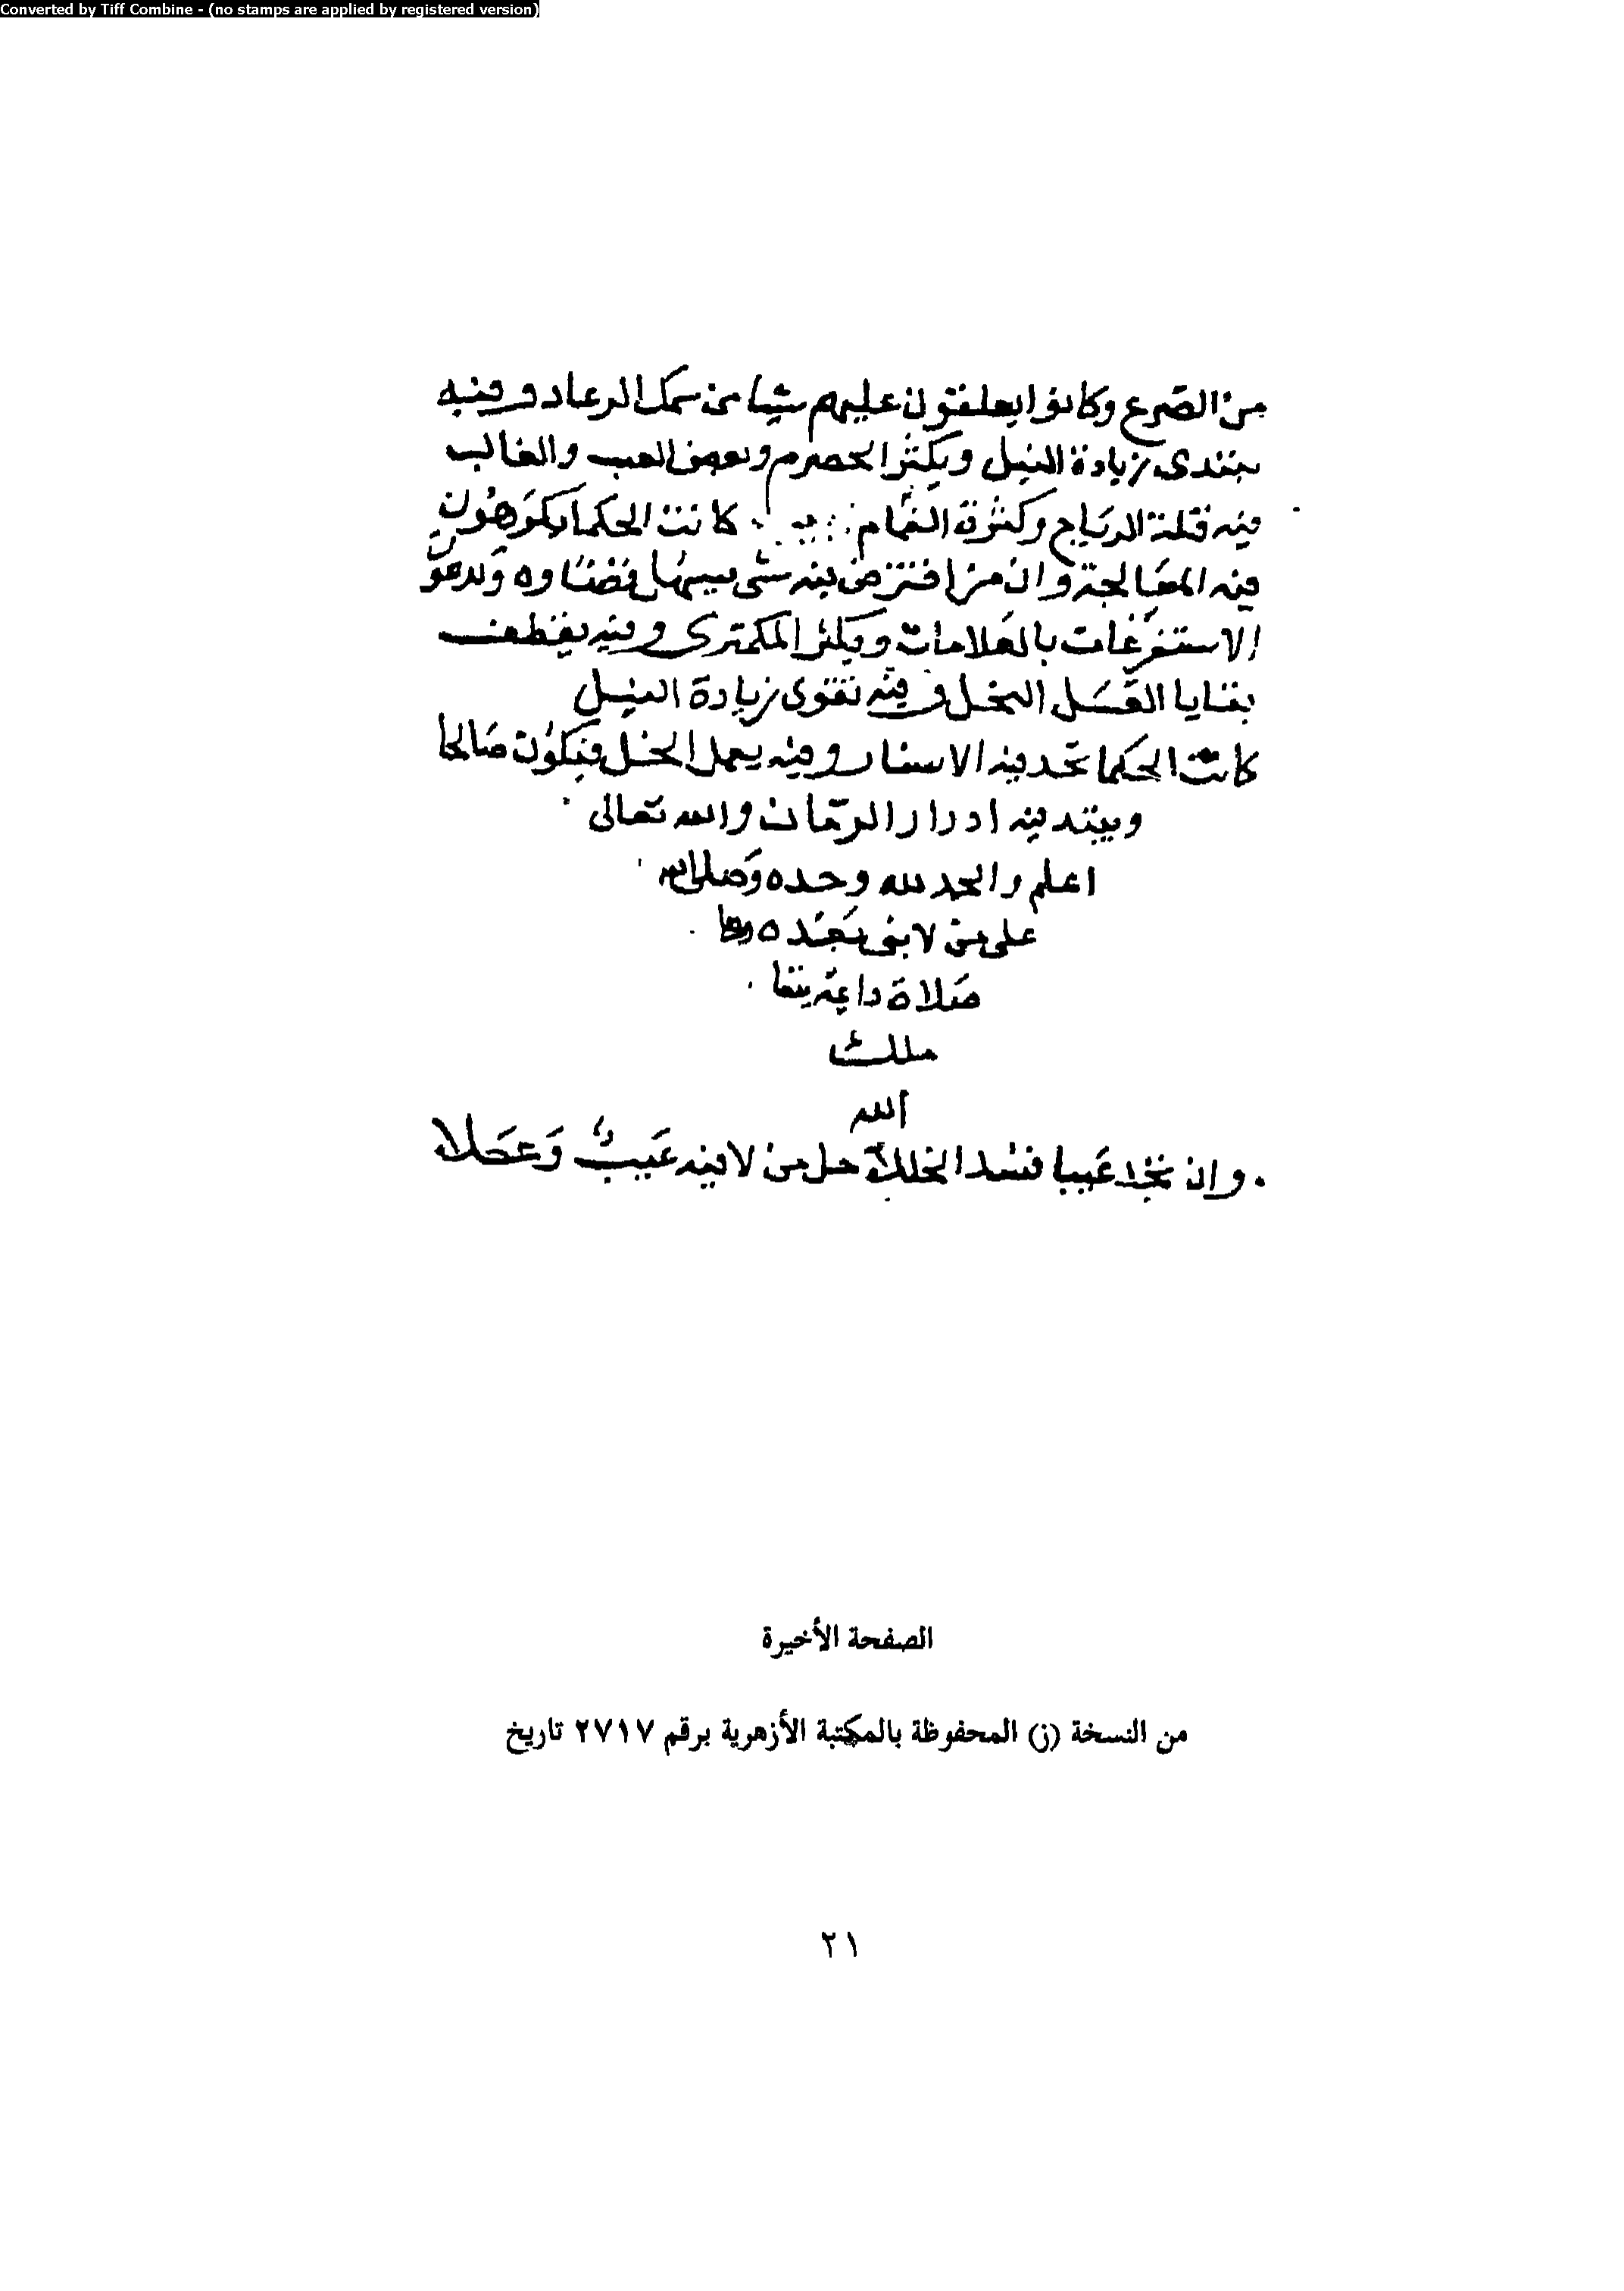 Converted by Tiff Combine - (no stamps are applied by registered version)
من الصرع وكانوا يعلقون عليهم شيا من سمك الرعاد وفيه
يبتدى زيادة النيل ويكثر الحصرم وبعض العنب والغالب
فيه قلة الرياح وكثرة الغمام كانت الحكما يكرهون
فيه المعالجة وان من افترض فيه شى
الاستفرغات بالعلامات ويكثر الكمترى وفيه يقطف
بقايا العسل النحل وفيه تقوى زيادة النيل
كانت الحكما تحد فيه الاسفار وفيه يعمل الخل فيكون صالحا
ويبتد فيه ادرار الرمان والله تعالى
اعلم والحمد لله وحده وصلى الله
على من لا نبى بعده
صلاة دايمة بقا
ملك
الله
وان تجد عيبا فسد الخللا جل من لا فيه عيب وعلا
الصفحة الأخيرة
من النسخة (ز) المحفوظة بالمكتبة الأزهرية برقم ٢٧١٧ تاريخ
٢١